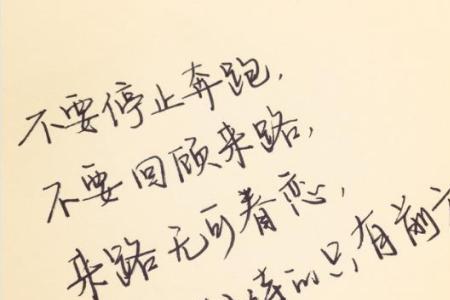 不要停止奔跑,
不要回顾来路,
来路无可眷恋,
待的只有前